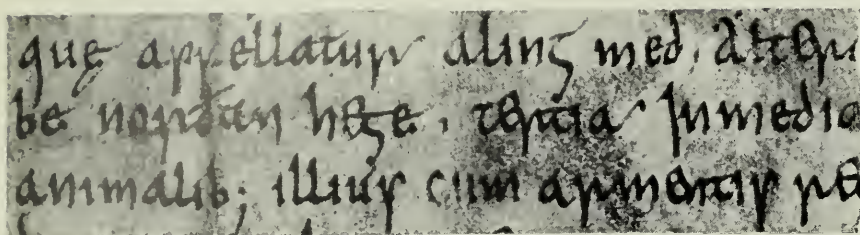 quę appellatur aling med, alteru
be norðan hege . tertia Inmedia
animalib; illius cum armentis re